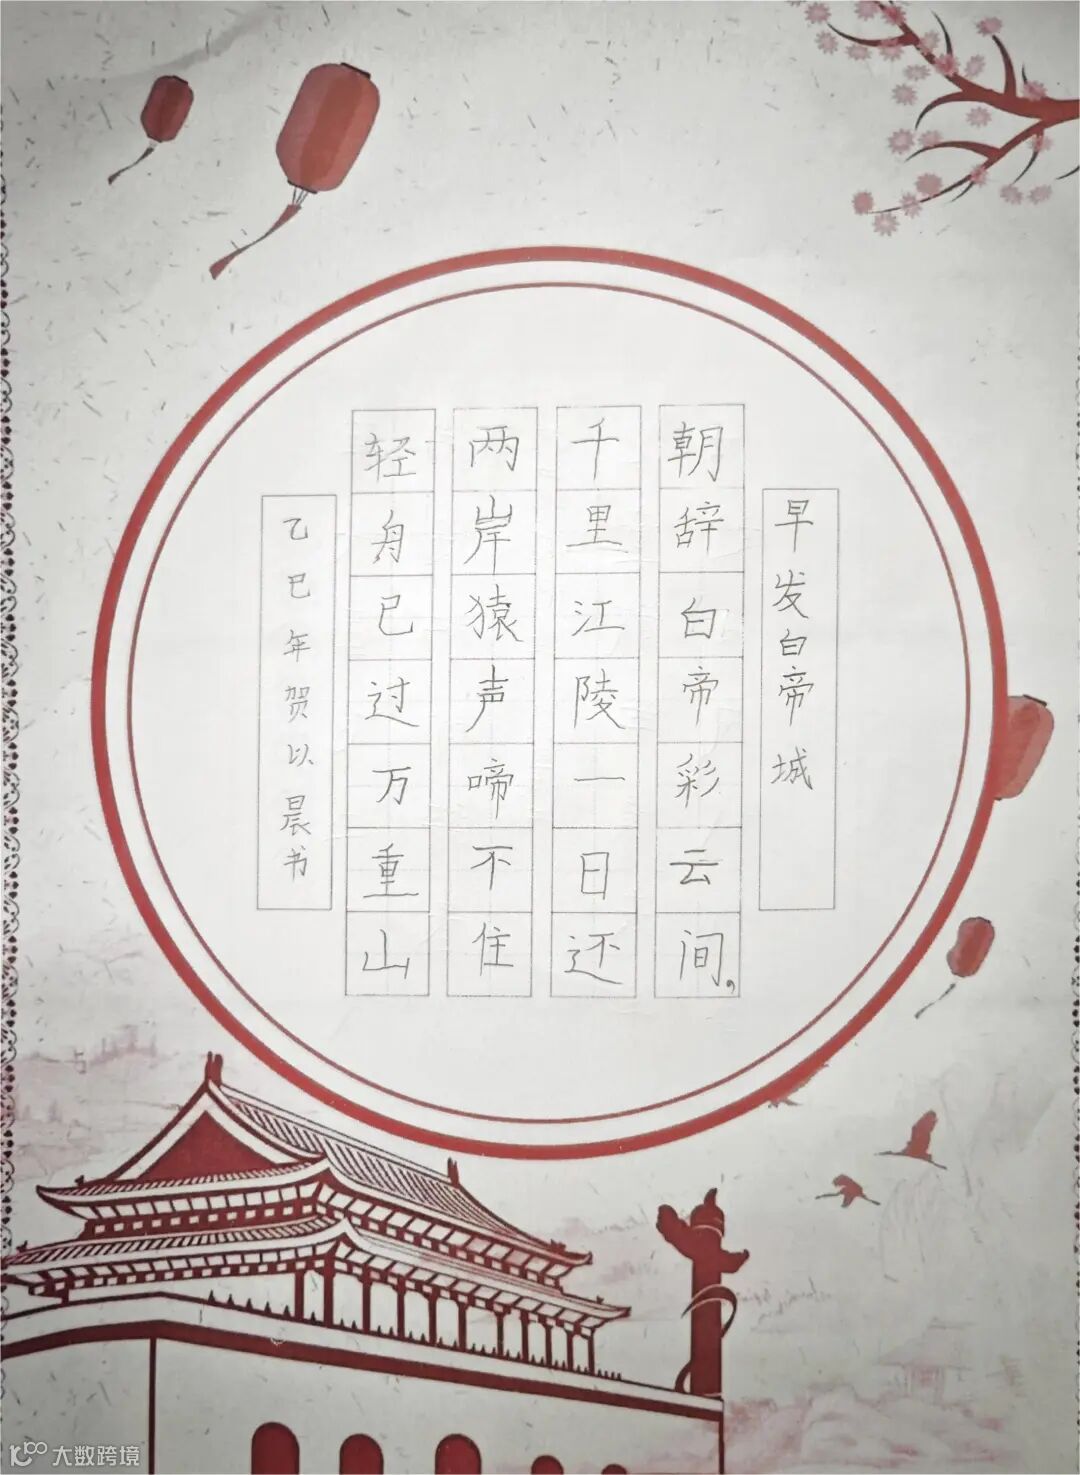 早发白帝城
朝辞白帝彩云间，
千里江陵一日还
两岸猿声啼不住
轻舟已过万重山
乙巳年贺以晨书
大数跨境